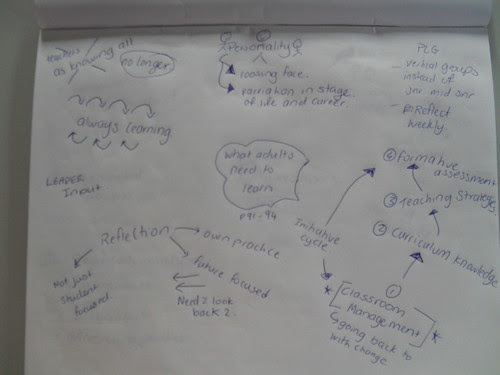 Leaders
as knowing all
no longer
always learning
LEADER
Input
Reflection
own practice
future focused
Need 2 look
back 2.
Not just
student
focused.
Personality
loosing face.
variation in stage
of life and career.
what adults
need to
learn
P91-94
PLG
- verbal groups
instead of
jnr mid snr
- Reflect
weekly.
Initiative
cycle
④ formative
assessment
③ Teaching Strategies
② Curriculum knowledge
①
* [Classroom
Management] *
going back to
with change